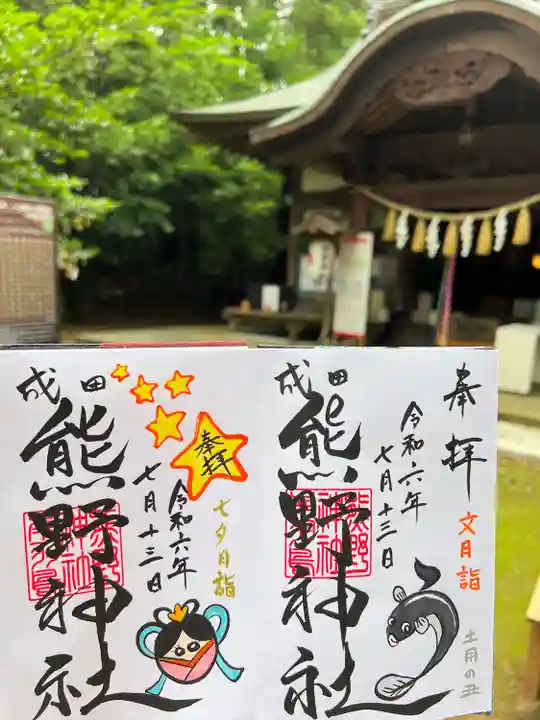 奉拝
文月詣
土用の丑
令和六年
七月十三日
成田
熊野神社
奉拝
七夕月詣
令和六年
七月十三日
成田
熊野神社